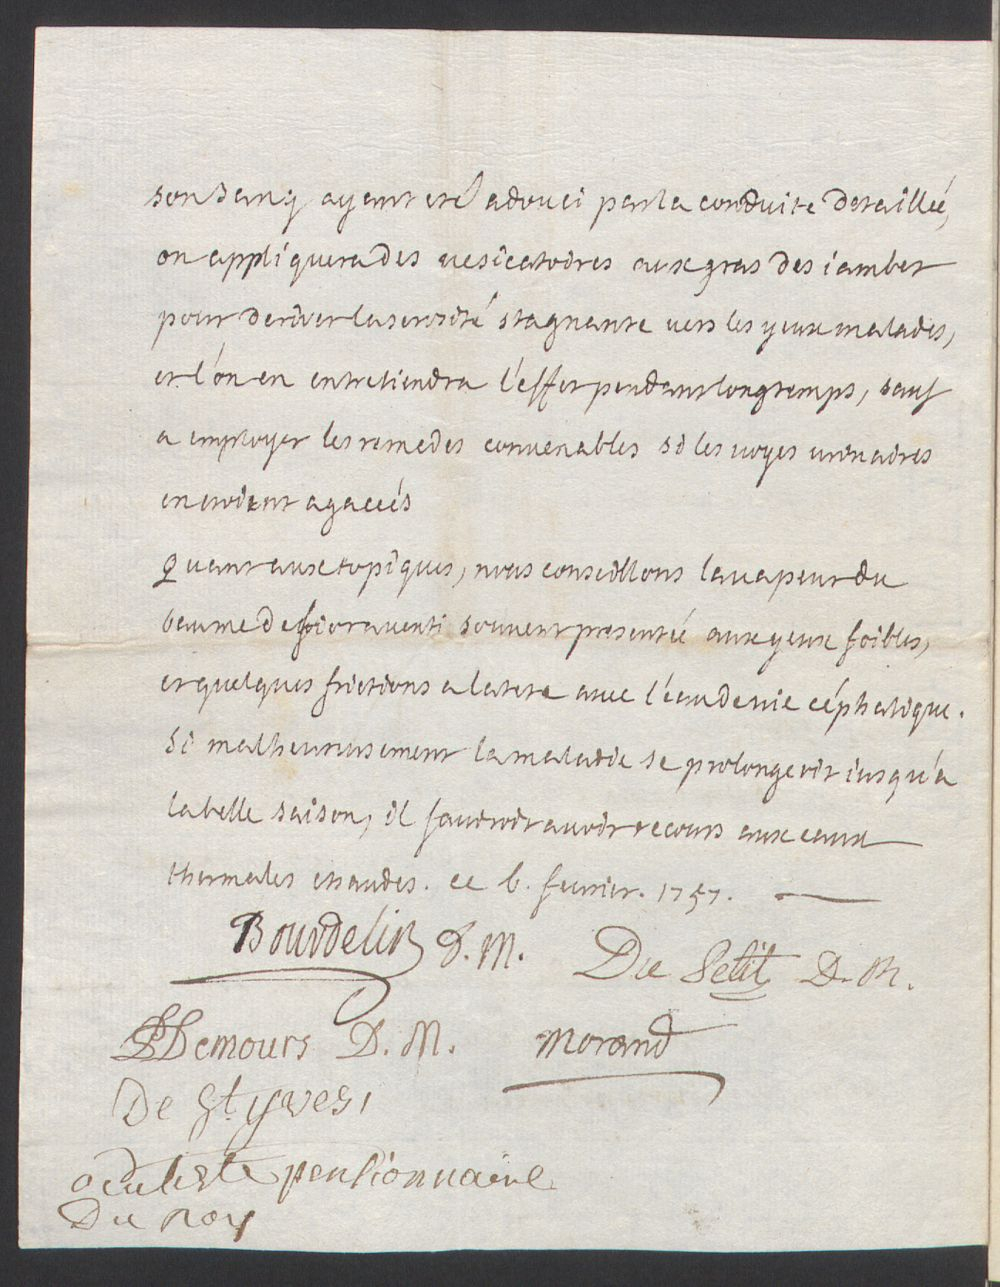 son sang ayant eté adouci par la conduite detaillée,
on appliquera des vesicatoires aux gras des iambes
pour deriver la serosité stagnante vers les yeux malades,
et l'on en entretiendra l'effet pendant longtemps, sauf
a employer les remedes convenables si les voyes urinaires
en etoient agacées
Quant aux topiques, nous conseillons la vapeur du
baume de fioraventi souvent presentée aux yeux foibles,
et quelques frictions a la tete avec l'eau de vie céphalique.
Si malheureusement la maladie se prolongeoit iusqu'a
la belle saison, il faudroit avoir recours aux eaux
thermales chaudes. ce 6. fevrier. 1757.
Bourdelin D. M. Du Petit D. M.
Demours D. M. Morand
De St yves,
oculiste pensionnaire
Du Roy